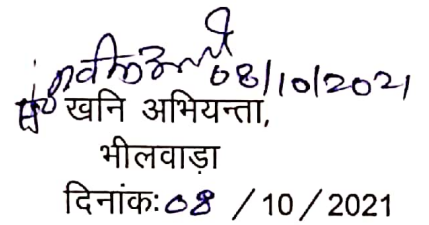 08/10/2021
खनि अभियन्ता,
भीलवाड़ा
दिनांकः 08 / 10 / 2021